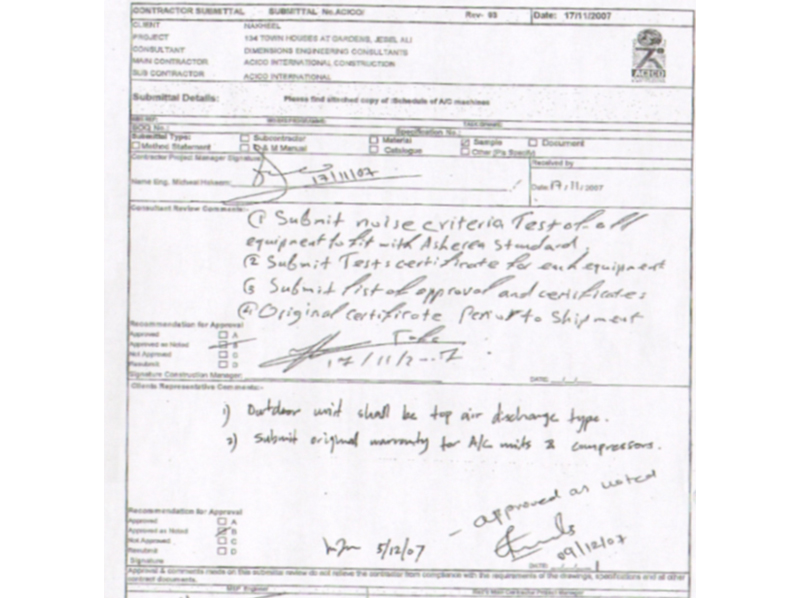 CONTRACTOR SUBMITTAL SUBMITTAL No.ACICO/ Rev- 03 Date: 17/11/2007
CLIENT NAKHEEL
PROJECT 134 TOWN HOUSES AT GARDENS, JEBEL ALI
CONSULTANT DIMENSIONS ENGINEERING CONSULTANTS
MAIN CONTRACTOR ACICO INTERNATIONAL CONSTRUCTION
SUB CONTRACTOR ACICO INTERNATIONAL
ACICO
Submittal Details: Please find attached copy of :Schedule of A/C machines
BOQ No.: Specification No.:
Submittal Type: Subcontractor Material Sample Document
Method Statement O & M Manual Catalogue Other (Pls Specify)
Contractor Project Manager Signature Received by
17/11/07
Name Eng. Date 17/11/2007
Consultant Review Comments:-
① Submit noise criteria Test of all
equipment to fit with Standard.
② Submit Tests certificate for each equipment
③ Submit list of approval and certificates
④ Original certificate to Shipment
Recommendation for Approval
Approved A
Approved as Noted B
Not Approved C
Resubmit D
17/11/2007
Signature Construction Manager: DATE: __/__/__
Clients Representative Comments:-
1) Outdoor unit shall be top air discharge type.
2) Submit original warranty for A/C units & compressors.
- approved as noted
Recommendation for Approval
Approved A
Approved as Noted B
Not Approved C
Resubmit D
5/12/07
09/12/07
Signature DATE:
Approval & comments made on this submittal review do not relieve the contractor from compliance with the requirements of the drawings, specifications and all other
contract documents.